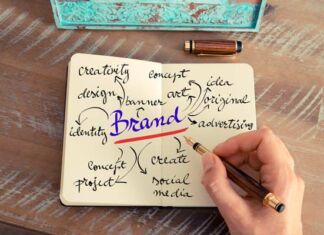 creativity
concept
design
banner
art
idea
original
identity
Brand
advertising
concept
create
project
social
media